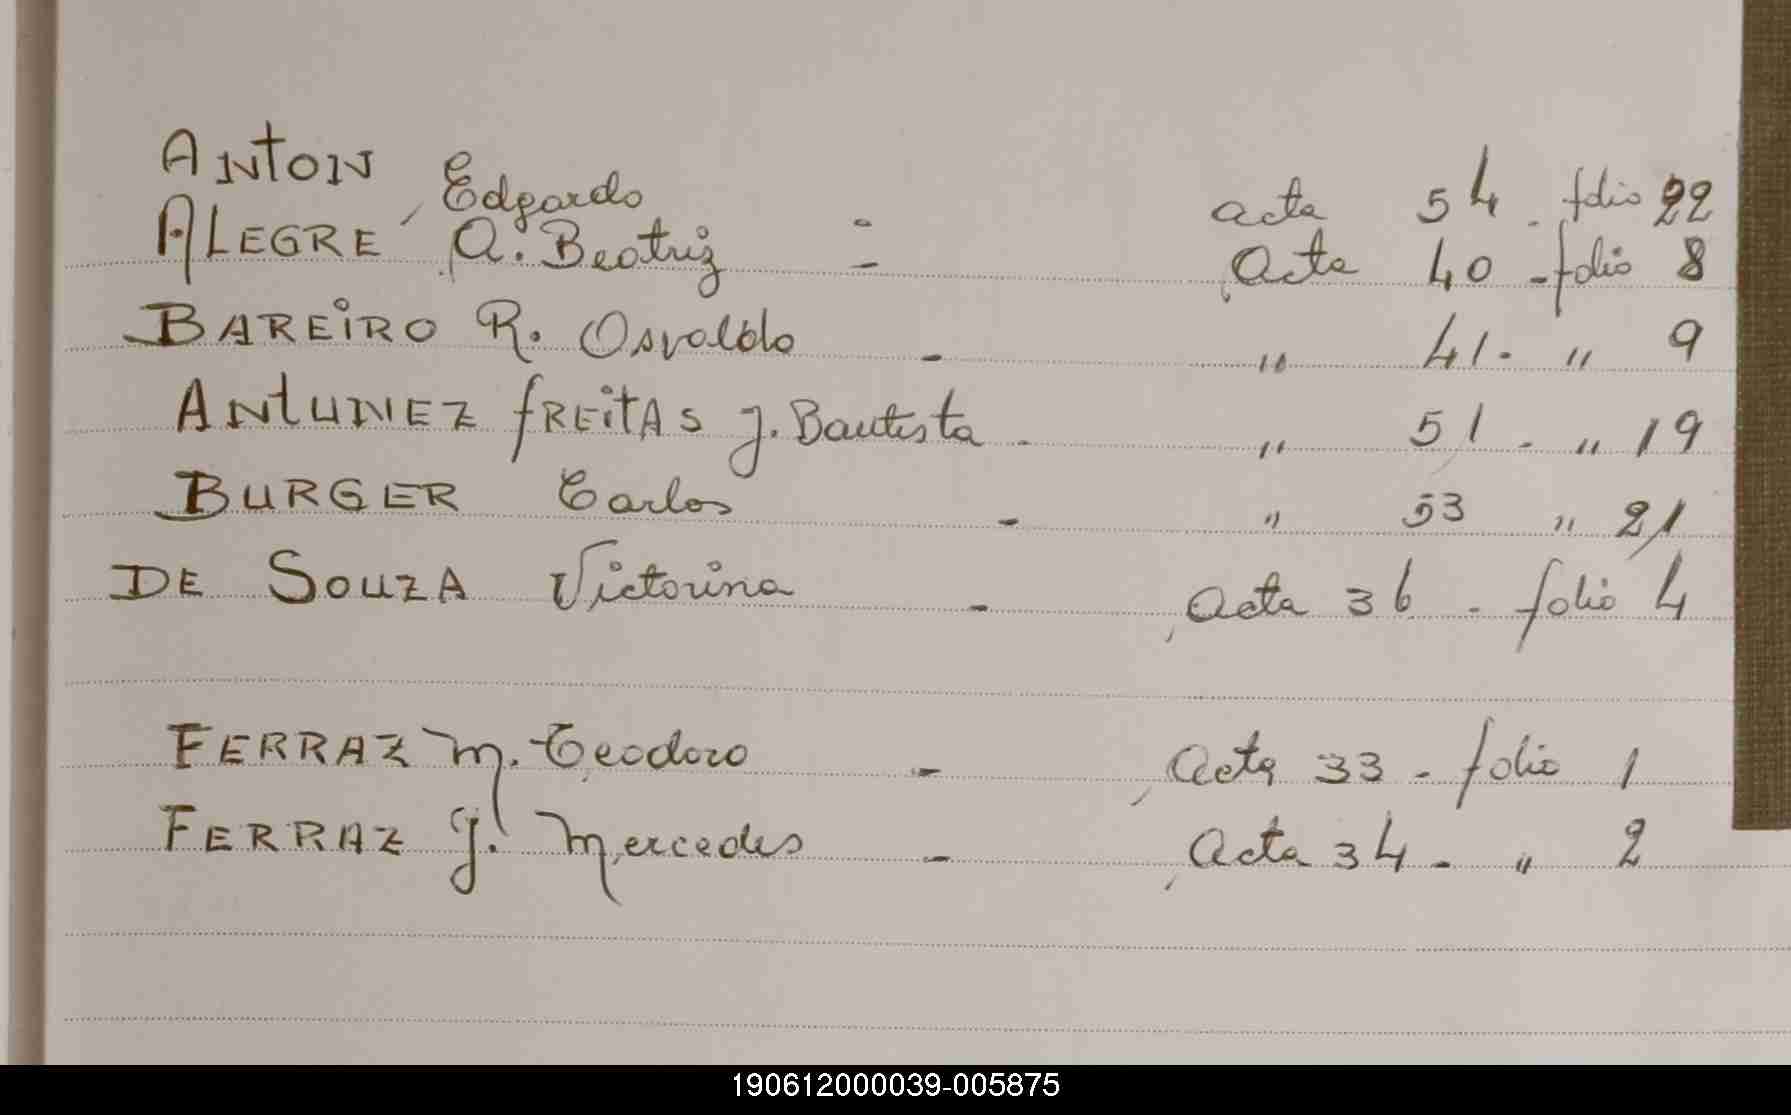 ANTON, Edgardo - acta 54. folio 22
ALEGRE A. Beatriz - Acta 40 - folio 8
BAREIRO R. Osvaldo - " 41. " 9
ANTUNEZ FREITAS J. Bautista - " 51 - " 19
BURGER Carlos - " 53 " 21
DE SOUZA Victorina - Acta 36 - folio 4
FERRAZ M. Teodoro - Acta 33 - folio 1
FERRAZ J. Mercedes - Acta 34 - " 2
190612000039-005875